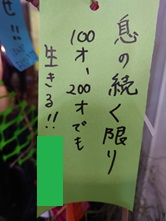 息の続く限り
100才、200才でも
生きる!!
せ!!